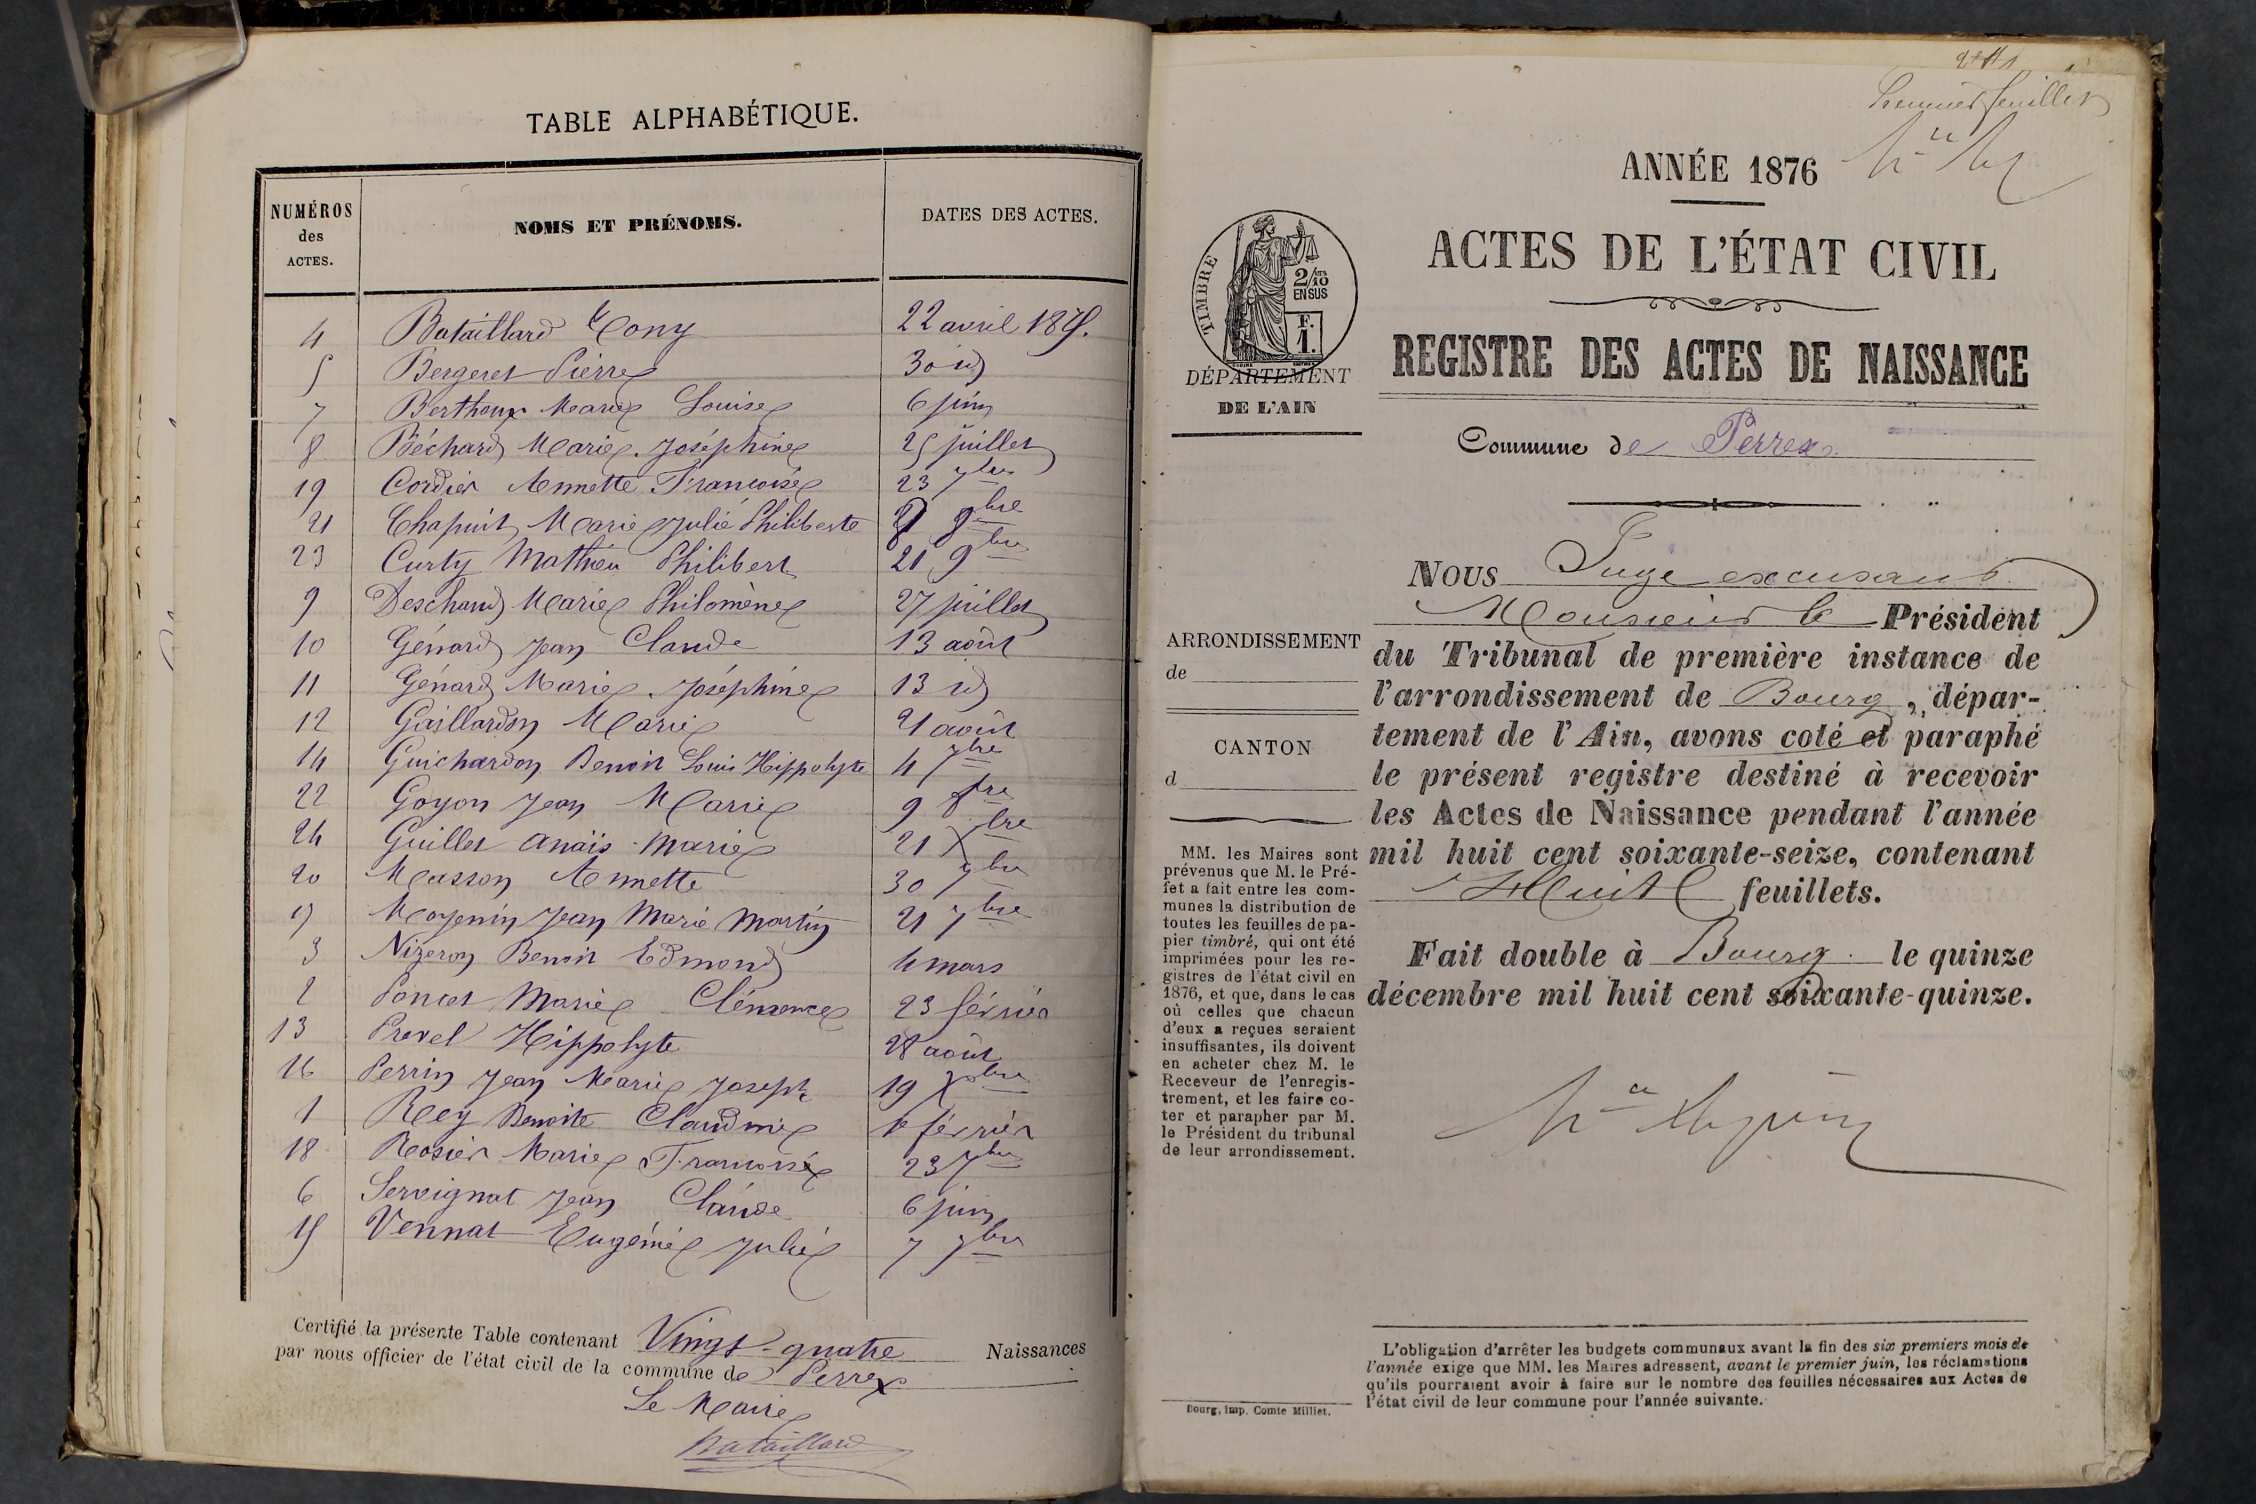 TABLE ALPHABÉTIQUE.
NUMÉROS des ACTES. NOMS ET PRÉNOMS. DATES DES ACTES.
4 Bataillard Tony 22 avril 1875.
5 Bergeret Pierre 30 id
7 Berthoux Marie Louise 6 juin
8 Béchard Marie Joséphine 25 juillet
19 Cordier Annette Françoise 23 7bre
21 Chapuit Marie Julie Philiberte 9bre
23 Curty Mathieu Philibert 21 9bre
9 Deschand Marie Philomène 27 juillet
10 Génard Jean Claude 13 août
11 Génard Marie Joséphine 13 id
12 Gaillardon Marie 21 août
14 Guichardon Benoit Louis Hippolyte 4 7bre
22 Goyon Jean Marie 9 8bre
24 Guillet Anaïs Marie 21 Xbre
20 Masson Annette 30 7bre
17 Moyenin Jean Marie Martin 21 7bre
3 Nizeron Benoit Edmond 4 mars
2 Poncet Marie Clémence 23 février
13 Prevel Hippolyte 28 août
16 Perrin Jean Marie Joseph 19
1 Rey Benoite Claudine février
18 Rosier Marie Françoise 23 7bre
6 Servignat Jean Claude 6 juin
15 Vennat Eugénie Julie 7 7bre
Certifié la présente Table contenant Vingt-quatre Naissances
par nous officier de l'état civil de la commune de Perrex
Le Maire
Bataillard
Premier feuillet
ANNÉE 1876
ACTES DE L'ÉTAT CIVIL
REGISTRE DES ACTES DE NAISSANCE
TIMBRE
2/10 EN SUS
F. 1.
DÉPARTEMENT
DE L'AIN
Commune de Perrex
ARRONDISSEMENT
de
CANTON
d
MM. les Maires sont
prévenus que M. le Pré-
fet a fait entre les com-
munes la distribution de
toutes les feuilles de pa-
pier timbré, qui ont été
imprimées pour les re-
gistres de l'état civil en
1876, et que, dans le cas
où celles que chacun
d'eux a reçues seraient
insuffisantes, ils doivent
en acheter chez M. le
Receveur de l'enregis-
trement, et les faire co-
ter et parapher par M.
le Président du tribunal
de leur arrondissement.
Bourg, imp. Comte Milliet.
NOUS Juge excusant
Monsieur le Président
du Tribunal de première instance de
l'arrondissement de Bourg, dépar-
tement de l'Ain, avons coté et paraphé
le présent registre destiné à recevoir
les Actes de Naissance pendant l'année
mil huit cent soixante-seize, contenant
Huit feuillets.
Fait double à Bourg le quinze
décembre mil huit cent soixante-quinze.
L'obligation d'arrêter les budgets communaux avant la fin des six premiers mois de
l'année exige que MM. les Maires adressent, avant le premier juin, les réclamations
qu'ils pourraient avoir à faire sur le nombre des feuilles nécessaires aux Actes de
l'état civil de leur commune pour l'année suivante.